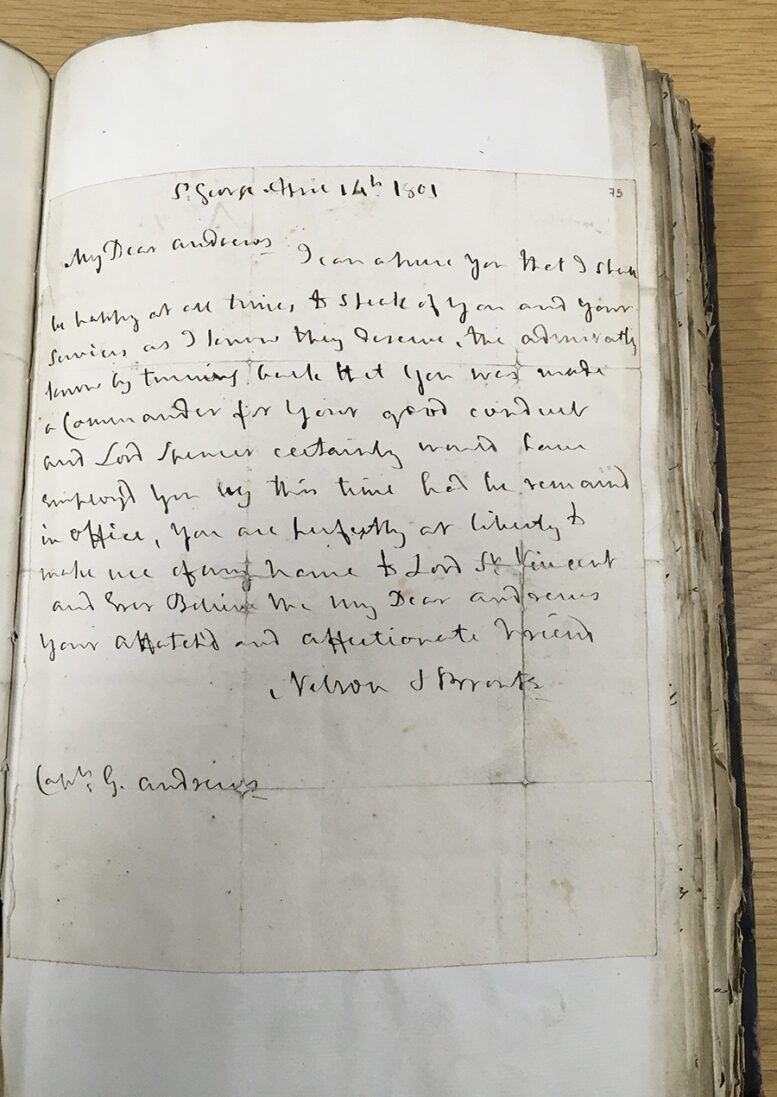 St. George April 14th 1801
75
My Dear Andrews I can assure you that I shall
be happy at all times, to speak of you and your
services as I know they deserve, the admiralty
know by turning back that you was made
a Commander for your good conduct
and Lord Spencer certainly would have
employ'd you by this time had he remaind
in office, you are perfectly at liberty to
make use of my name to Lord St. Vincent
and Ever Believe Me My Dear Andrews
your attatch'd and affectionate Friend
Nelson & Bronte
Captn. G. Andrews